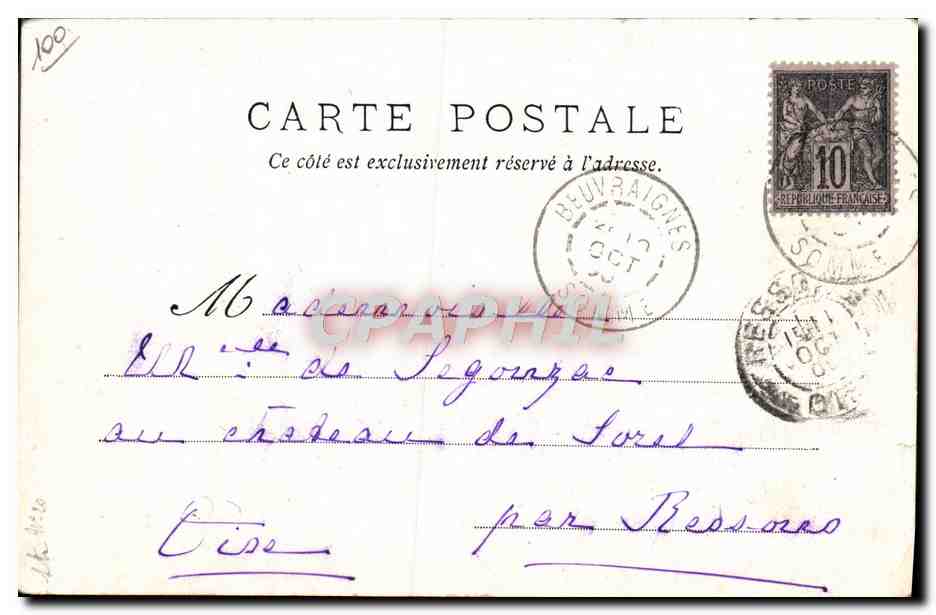 100
POSTE
10
REPUBLIQUE FRANÇAISE
CARTE POSTALE
Ce côté est exclusivement réservé à l'adresse.
BEUVRAIGNES
OCT
SOMME
SOMME
OCT
Mademoiselle
CPAPHIL
de Segonzac
au château de Sorel
par Ressons
Oise